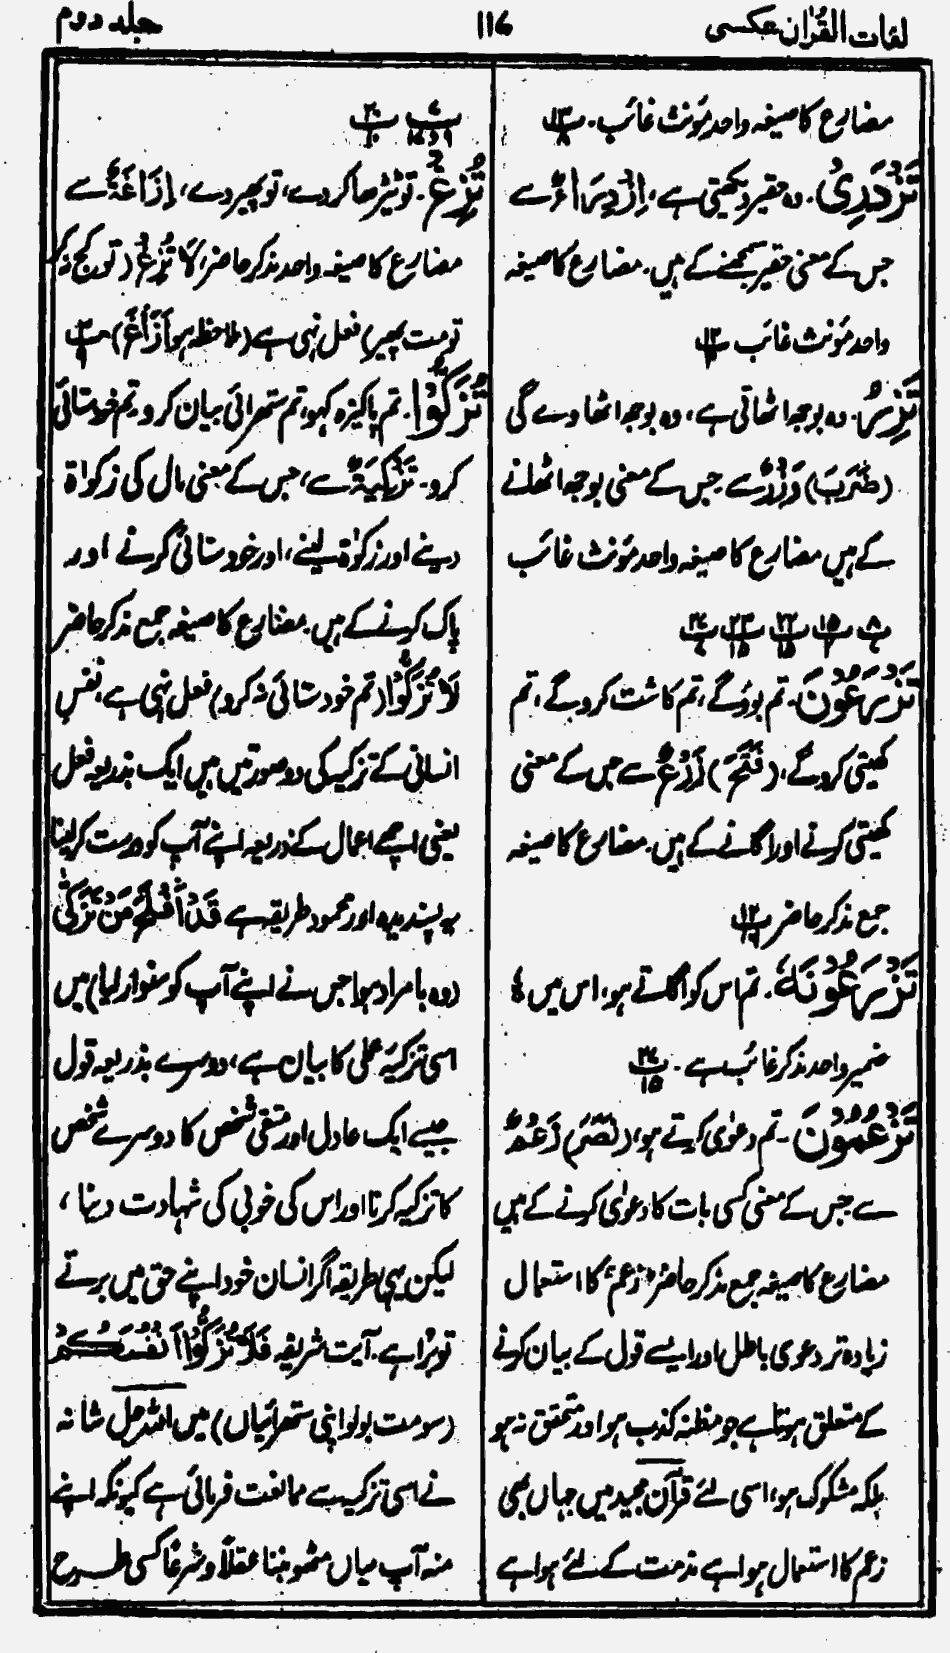 لغات القرآن عکسی
۱۱۶
جلد دوم
مضارع کا صیغہ واحد مؤنث غائب. پ ۱۳/۸
تَزْدَرِیْ. وہ حقیر دیکھتی ہے، اِزْدِرَاءٌ سے
جس کے معنی حقیر سمجھنے کے ہیں. مضارع کا صیغہ
واحد مؤنث غائب پ ۱۲
تَزِرُ. وہ بوجھ اٹھاتی ہے، وہ بوجھ اٹھاوے گی
(ضَرَبَ) وِزْرٌ سے جس کے معنی بوجھ اٹھانے
کے ہیں مضارع کا صیغہ واحد مؤنث غائب
پ ۸ پ ۱۵ پ ۲۲ پ ۲۳ پ ۲۷
تَزْرَعُوْنَ. تم بوؤ گے، تم کاشت کرو گے، تم
کھیتی کرو گے، (فَتَحَ) زَرْعٌ سے جس کے معنی
کھیتی کرنے اور اگانے کے ہیں. مضارع کا صیغہ
جمع مذکر حاضر پ ۱۲
تَزْرَعُوْنَهٗ. تم اس کو اگاتے ہو، اس میں ہٗ
ضمیر واحد مذکر غائب ہے. پ ۲۷/۱۵
تَزْعُمُوْنَ. تم دعوٰی کرتے ہو، (نَصَرَ) زَعْمٌ
سے جس کے معنی کسی بات کا دعوٰی کرنے کے ہیں
مضارع کا صیغہ جمع مذکر حاضر، زعم، کا استعمال
زیادہ تر دعوی باطل اور ایسے قول کے بیان کرنے
کے متعلق ہوتا ہے جو مظنہ کذب ہو اور متحقق نہ ہو
بلکہ مشکوک ہو، اسی لئے قرآن مجید میں جہاں بھی
زعم کا استعمال ہوا ہے مذمت کے لئے ہوا ہے
پ ۲۰/۱۰ پ ۷/۹ و ۱۷
تُزِغْ. تو ٹیڑھا کر دے، تو پھیر دے، اِزَاغَةٌ سے
مضارع کا صیغہ واحد مذکر حاضر، لَا تُزِغْ (تو کج نہ کر
تو مت پھیر) فعل نہی ہے (ملاحظہ ہو اَزَاغَ) پ ۳/۹
تُزَكُّوْا. تم پاکیزہ کہو، تم ستھرائی بیان کرو، تم خودستائی
کرو. تَزْكِيَةٌ سے، جس کے معنی مال کی زکواۃ
دینے اور زکوٰۃ لینے، اور خودستائی کرنے اور
پاک کرنے کے ہیں. مضارع کا صیغہ جمع مذکر حاضر
لَا تُزَكُّوْا (تم خودستائی نہ کرو) فعل نہی ہے، نفسِ
انسانی کے تزکیہ کی دو صورتیں ہیں ایک بذریعہ فعل
یعنی اچھے اعمال کے ذریعہ اپنے آپ کو درست کر لینا
یہ پسندیدہ اور محمود طریقہ ہے قَدْ اَفْلَحَ مَنْ تَزَكّٰى
(وہ بامراد ہوا جس نے اپنے آپ کو سنوار لیا) میں
اسی تزکیہ عملی کا بیان ہے، دوسرے بذریعہ قول
جیسے ایک عادل اور متقی شخص کا دوسرے شخص
کا تزکیہ کرنا اور اس کی خوبی کی شہادت دینا ،
لیکن یہی طریقہ اگر انسان خود اپنے حق میں برتے
تو بُرا ہے. آیت شریفہ فَلَا تُزَكُّوْا اَنْفُسَكُمْ
(سو مت بولو اپنی ستھرائیاں) میں اللہ جل شانہ
نے اسی تزکیہ سے ممانعت فرمائی ہے کیونکہ اپنے
منہ آپ میاں مٹھو بننا عقلاً و شرعًا کسی طرح